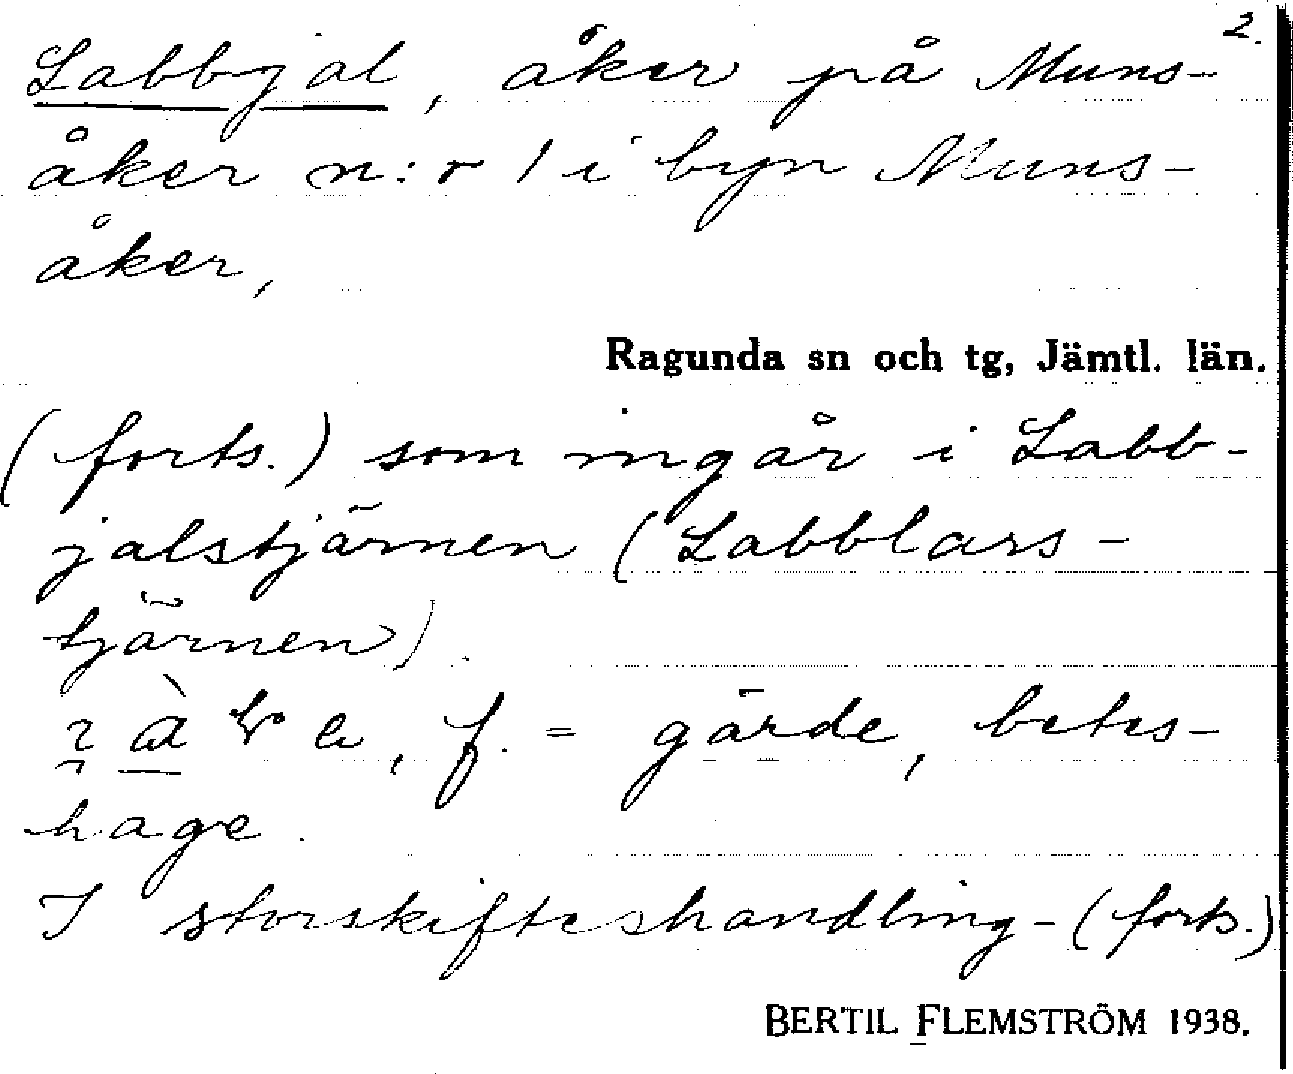 2.
Labbjal, åker på Muns-
åker n:r 1 i byn Muns-
åker,
Ragunda sn och tg, Jämtl. län.
(forts.) som ingår i Labb-
jalstjärnen (Labblars-
tjärnen).
f. = gärde, betes-
hage.
I storskifteshandling- (forts.)
BERTIL FLEMSTRÖM 1938.